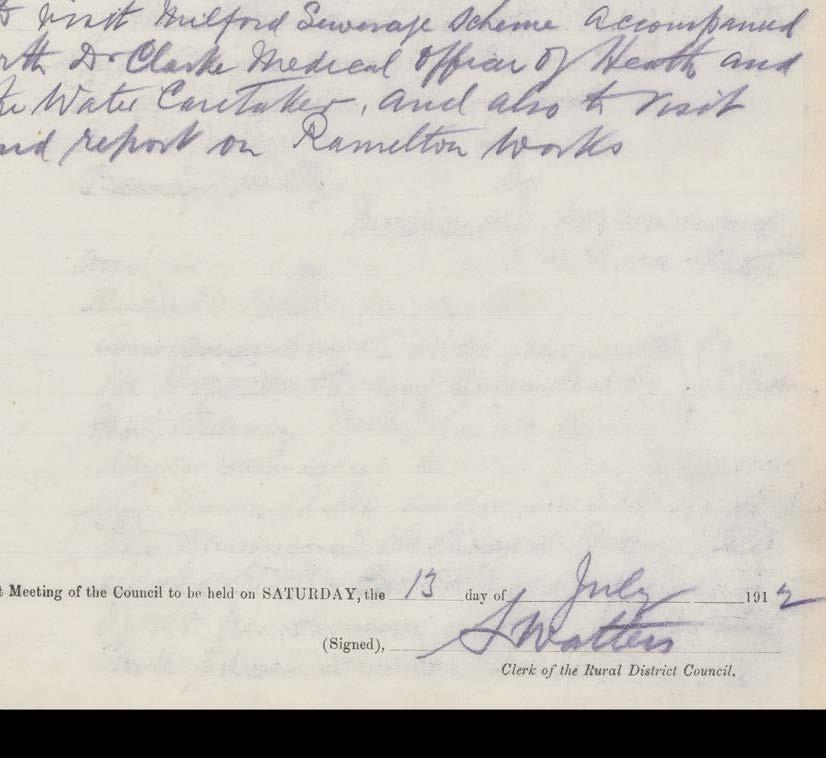 visit Milford Sewerage Scheme accompanied
Dr Clarke Medical Officer of Heath and
Water Caretaker, and also to visit
report on Ramelton Works
Meeting of the Council to be held on SATURDAY, the 13 day of July 1912
(Signed), S Watters
Clerk of the Rural District Council.